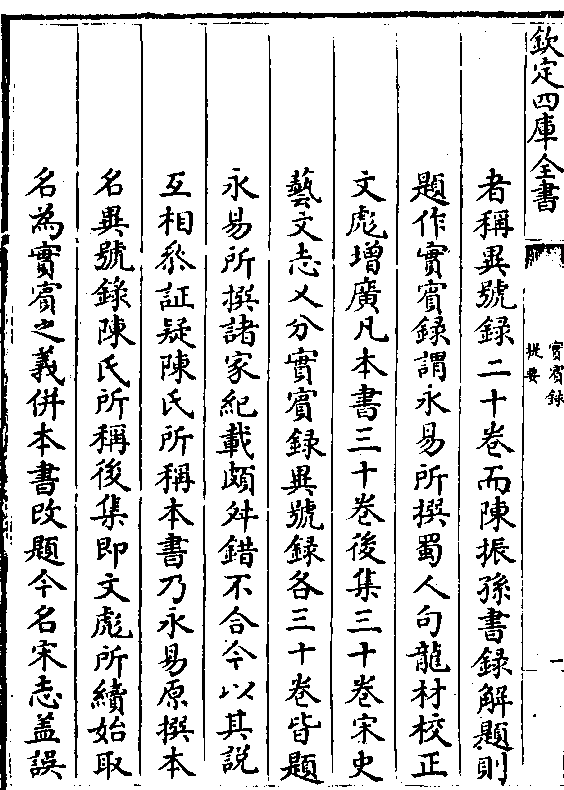 欽定四庫全書
實賓録
提要
一
者稱異號録二十卷而陳振孫書録解題則
題作實賓録謂永易所撰蜀人句龍材校正
文彪增廣凡本書三十卷後集三十卷宋史
藝文志乂分實賓録異號録各三十卷皆題
永易所撰諸家紀載頗舛錯不合今以其說
互相叅証疑陳氏所稱本書乃永易原撰本
名異號錄陳氏所稱後集即文彪所續始取
名為實賓之義併本書改題今名宋志盖誤